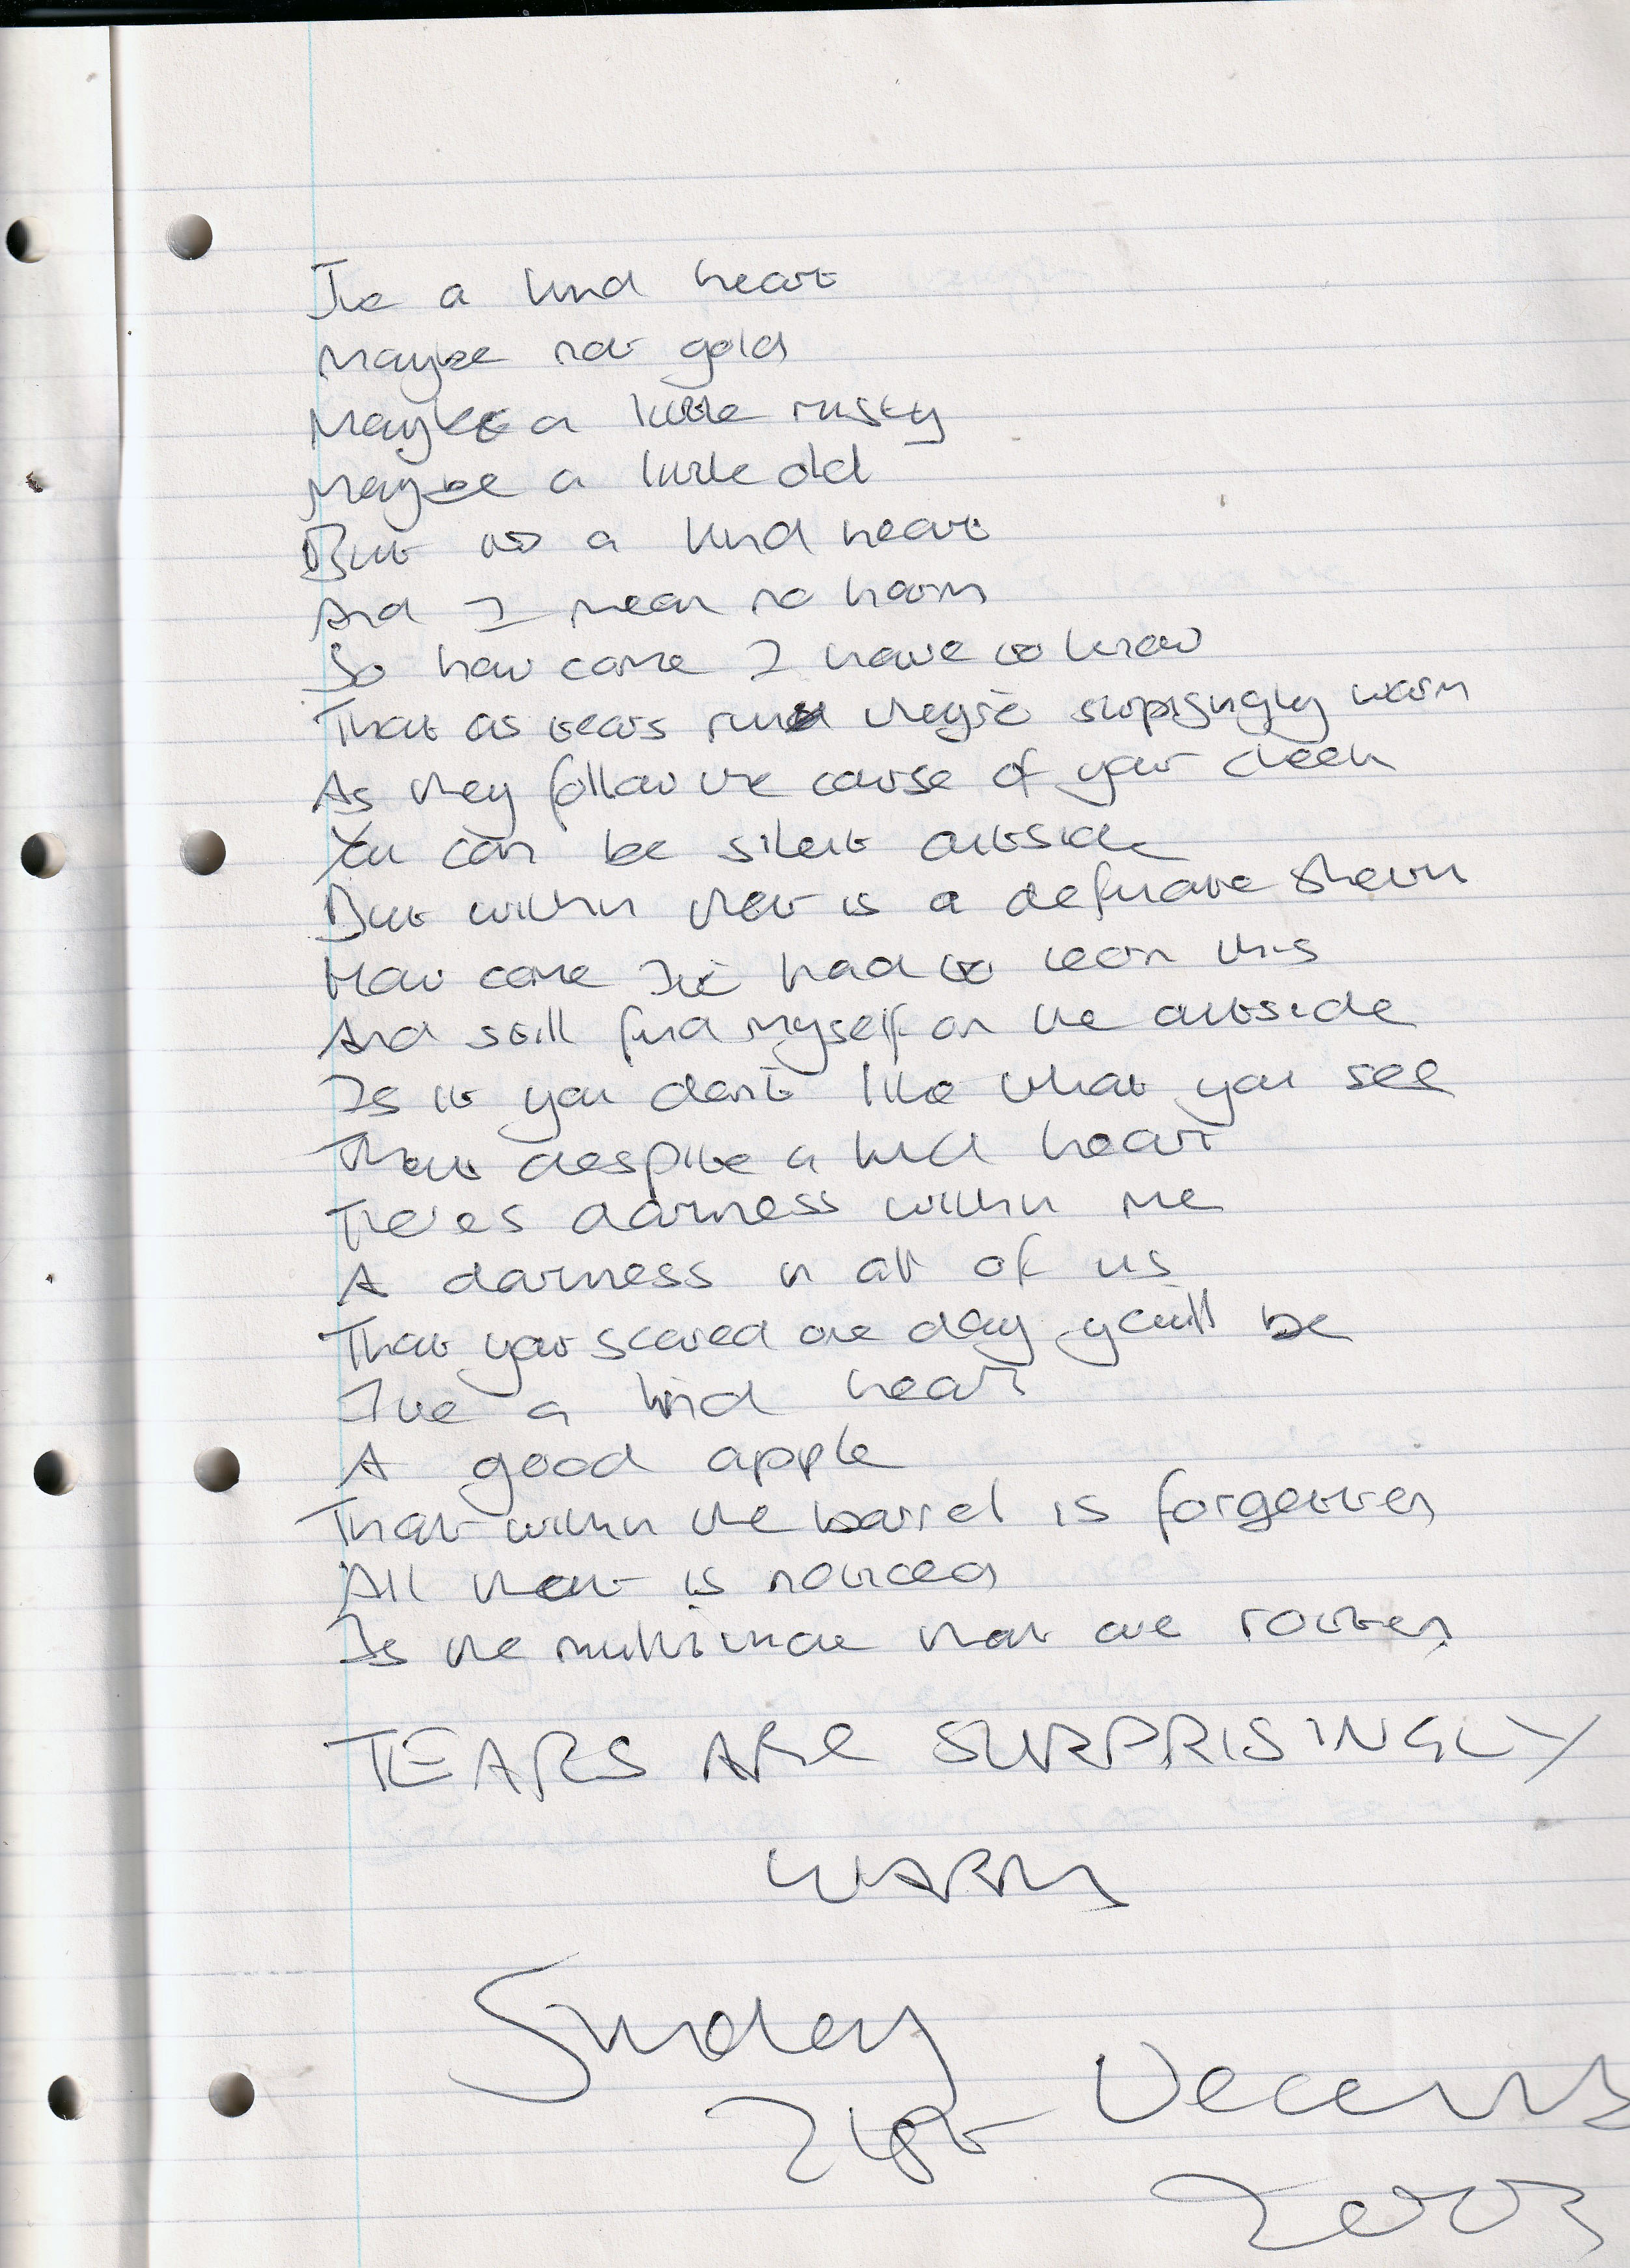 I've a kind heart
Maybe not gold
Maybe a little rusty
Maybe a little old
But its a kind heart
And I mean no harm
So how come I have to know
That as tears run they're surprisingly warm
As they follow the course of your cheek
You can be silent outside
But within that is a definate
How come I've had to learn this
And still find myself on the outside
Is it you don't like what you see
That despite a kind heart
There's darkness within me
A darkness in all of us
That your scared one day you'll be
I've a kind heart
A good apple
That within the barrel is forgotten
All that is noticed
Is the multitude that are rotten
TEARS ARE SURPRISINGLY
WARM
Sunday
21st December
2003